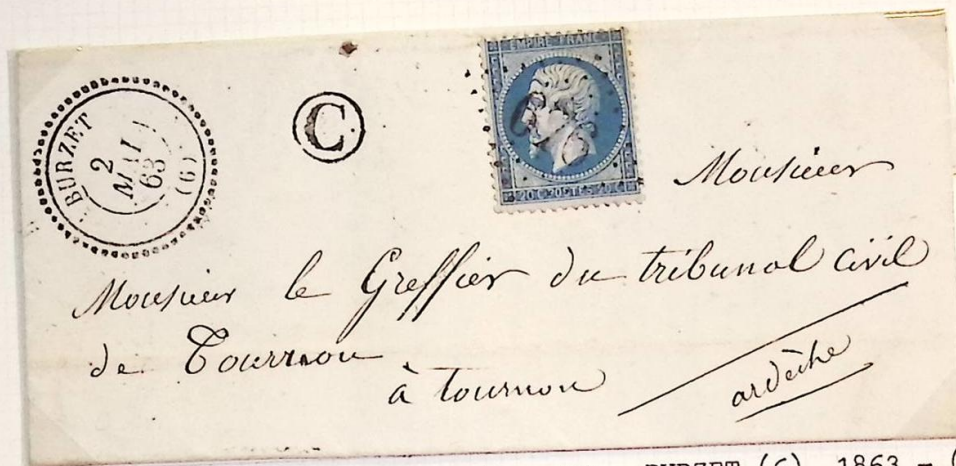 BURZET
2
MAI
63
(6)
C
EMPIRE FRANC
20 C POSTES 20 C
Monsieur
Monsieur le Greffier du tribunal Civil
de Tournon
à tournon
ardèche
BURZET (6) 1863 -